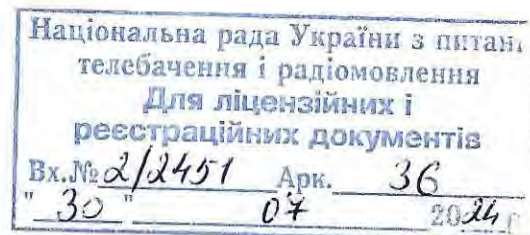 Національна рада України з питан
телебачення і радіомовлення
Для ліцензійних і
реєстраційних документів
Вх.№ 2/2451 Арк. 36
"30" 07 2024 р